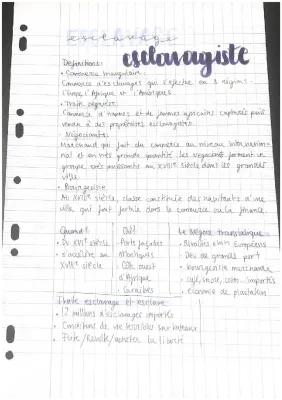 esclavagé
esclavagiste
Définitions:
• Commerce triangulaire:
Commerce d'esclavages qui s'effectue en 3 régions:
l'Europe l'Afrique et l'Amériques
• Traite négrière:
Commerce d'hommes et de femmes africains capturés pour
vendu à des propriétaires esclavagistes
• Négociants:
Marchand qui fait du commerce au niveau international
et en très grande quantité, les négociants forment un
groupe très puissants au XVIIIe siècle dont les grandes
ville
• Bourgeoisie:
Au XVIIIe siècle, classe constituée des habitants d'une
ville qui font fortune dans le commerce ou la finance.
Quand?
• Du XVIe siècle
s'accélère au
XVIIIe siècle
Où?
• Ports façades
Atlantiques
• Côte ouest
d'Afrique
• Caraïbes
Le Négoce
• Rivalités entre Européens
• Lieu de grands port
• bourgeoisie marchande
• café, sucre, coton importés
• économie de plantation
Traite esclavage et esclave
• 12 millions d'esclavages importés
• Conditions de vie terribles sur bateaux
• Fuite/Révolte/acheter la liberté